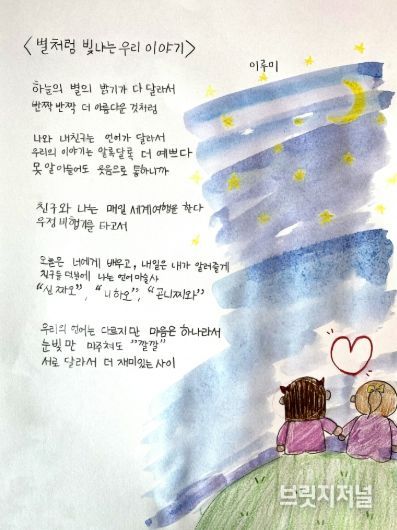 <별처럼 빛나는 우리 이야기>
이루미
하늘의 별의 밝기가 다 달라서
반짝 반짝 더 아름다운 것처럼
나와 내친구는 언어가 달라서
우리의 이야기는 알록달록 더 예쁘다
못 알아들어도 웃음으로 통하니까
친구와 나는 매일 세계여행을 한다
우정 비행기를 타고서
오늘은 너에게 배우고, 내일은 내가 알려줄게
친구들 덕분에 나는 언어마술사
"신짜오", "니하오", "곤니찌와"
우리의 언어는 다르지만 마음은 하나라서
눈빛만 마주쳐도 "깔깔"
서로 달라서 더 재미있는 사이
브릿지저널